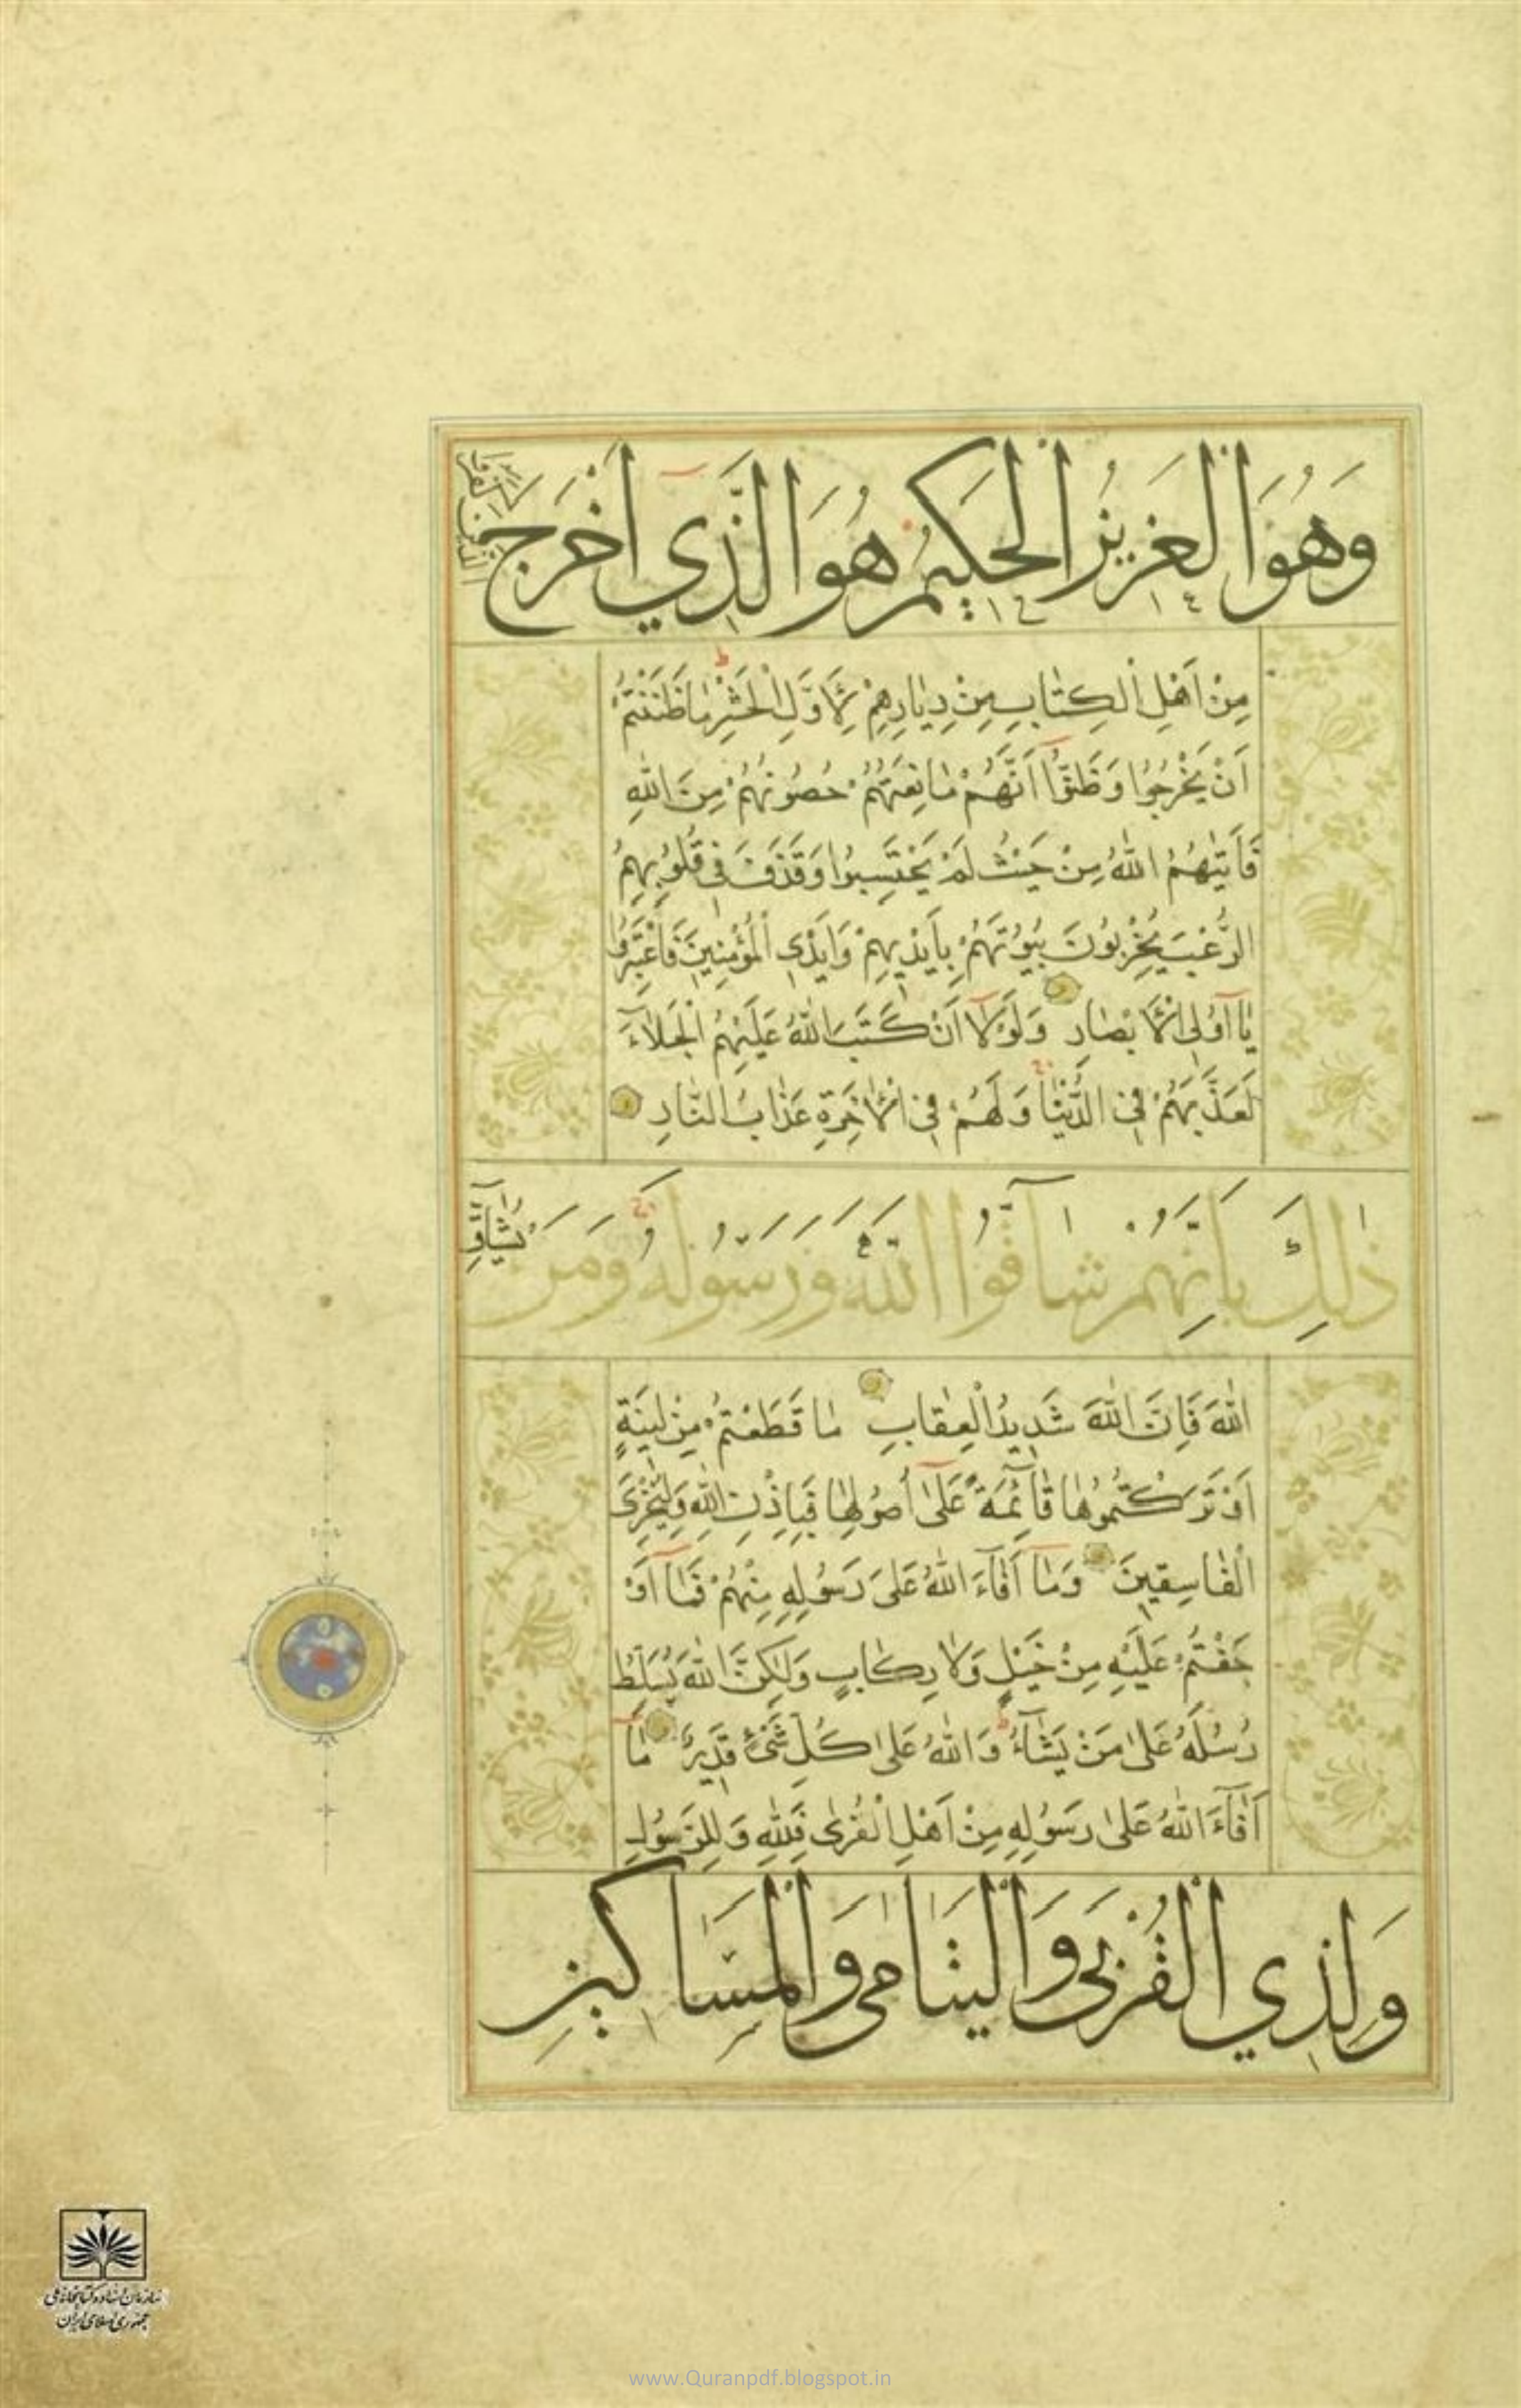 وَهُوَ الْعَزِيزُ الْحَكِيمُ هُوَ الَّذِي أَخْرَجَ الَّذِينَ كَفَرُوا
مِنْ اَهْلِ الْكِتٰابِ مِنْ دِيٰارِهِمْ لِاَوَّلِ الْحَشْرِ مٰا ظَنَنْتُمْ
اَنْ يَخْرُجُوا وَظَنُّوا اَنَّهُمْ مٰانِعَتُهُمْ حُصُونُهُمْ مِنَ اللّٰهِ
فَاَتٰيهُمُ اللّٰهُ مِنْ حَيْثُ لَمْ يَحْتَسِبُوا وَقَذَفَ فِي قُلُوبِهِمُ
الرُّعْبَ يُخْرِبُونَ بُيُوتَهُمْ بِاَيْدِيهِمْ وَاَيْدِي الْمُؤْمِنِينَ فَاعْتَبِرُوا
يٰا اُولِي الْاَبْصٰارِ وَلَوْلٰا اَنْ كَتَبَ اللّٰهُ عَلَيْهِمُ الْجَلٰاءَ
لَعَذَّبَهُمْ فِي الدُّنْيٰا وَلَهُمْ فِي الْاٰخِرَةِ عَذٰابُ النّٰارِ
ذٰلِكَ بِاَنَّهُمْ شٰاقُّوا اللّٰهَ وَرَسُولَهُ وَمَنْ يُشٰاقِّ
اللّٰهَ فَاِنَّ اللّٰهَ شَدِيدُ الْعِقٰابِ مٰا قَطَعْتُمْ مِنْ لِينَةٍ
اَوْ تَرَكْتُمُوهٰا قٰائِمَةً عَلٰى اُصُولِهٰا فَبِاِذْنِ اللّٰهِ وَلِيُخْزِيَ
الْفٰاسِقِينَ وَمٰا اَفٰاءَ اللّٰهُ عَلىٰ رَسُولِهِ مِنْهُمْ فَمٰا اَوْ
جَفْتُمْ عَلَيْهِ مِنْ خَيْلٍ وَلٰا رِكٰابٍ وَلٰكِنَّ اللّٰهَ يُسَلِّطُ
رُسُلَهُ عَلىٰ مَنْ يَشٰاءُ وَاللّٰهُ عَلىٰ كُلِّ شَيْءٍ قَدِيرٌ مٰا
اَفٰاءَ اللّٰهُ عَلىٰ رَسُولِهِ مِنْ اَهْلِ الْقُرىٰ فَلِلّٰهِ وَلِلرَّسُولِ
وَلِذِي الْقُرْبىٰ وَالْيَتٰامىٰ وَالْمَسٰاكِينِ
سازمان اسناد و کتابخانه ملی
جمهوری اسلامی ایران
www.Quranpdf.blogspot.in